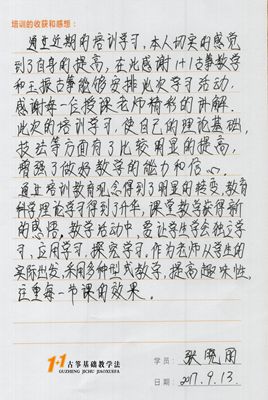 培训的收获和感想：
通过近期的培训学习，本人切实的感觉
到了自身的提高，在此感谢1+1古筝教学
和王振古筝能够安排此次学习活动，
感谢每一位授课老师精彩的讲解．
此次的培训学习，使自己的理论基础，
技法等方面有了比较明显的提高，
增强了做好教学的能力和信心。
通过培训教育观念得到了明显的转变，教育
科学理论学习得到了升华，课堂教学获得新
的感悟，教学活动中，要让学生学会独立学
习，应用学习，探究学习．作为老师从学生的
实际出发，采用多种型式教学，提高趣味性，
注重每一节课的效果。
1+1 古筝基础教学法
GUZHENG JICHU JIAOXUEFA
学员：张晓雨
日期：2017.9.13.